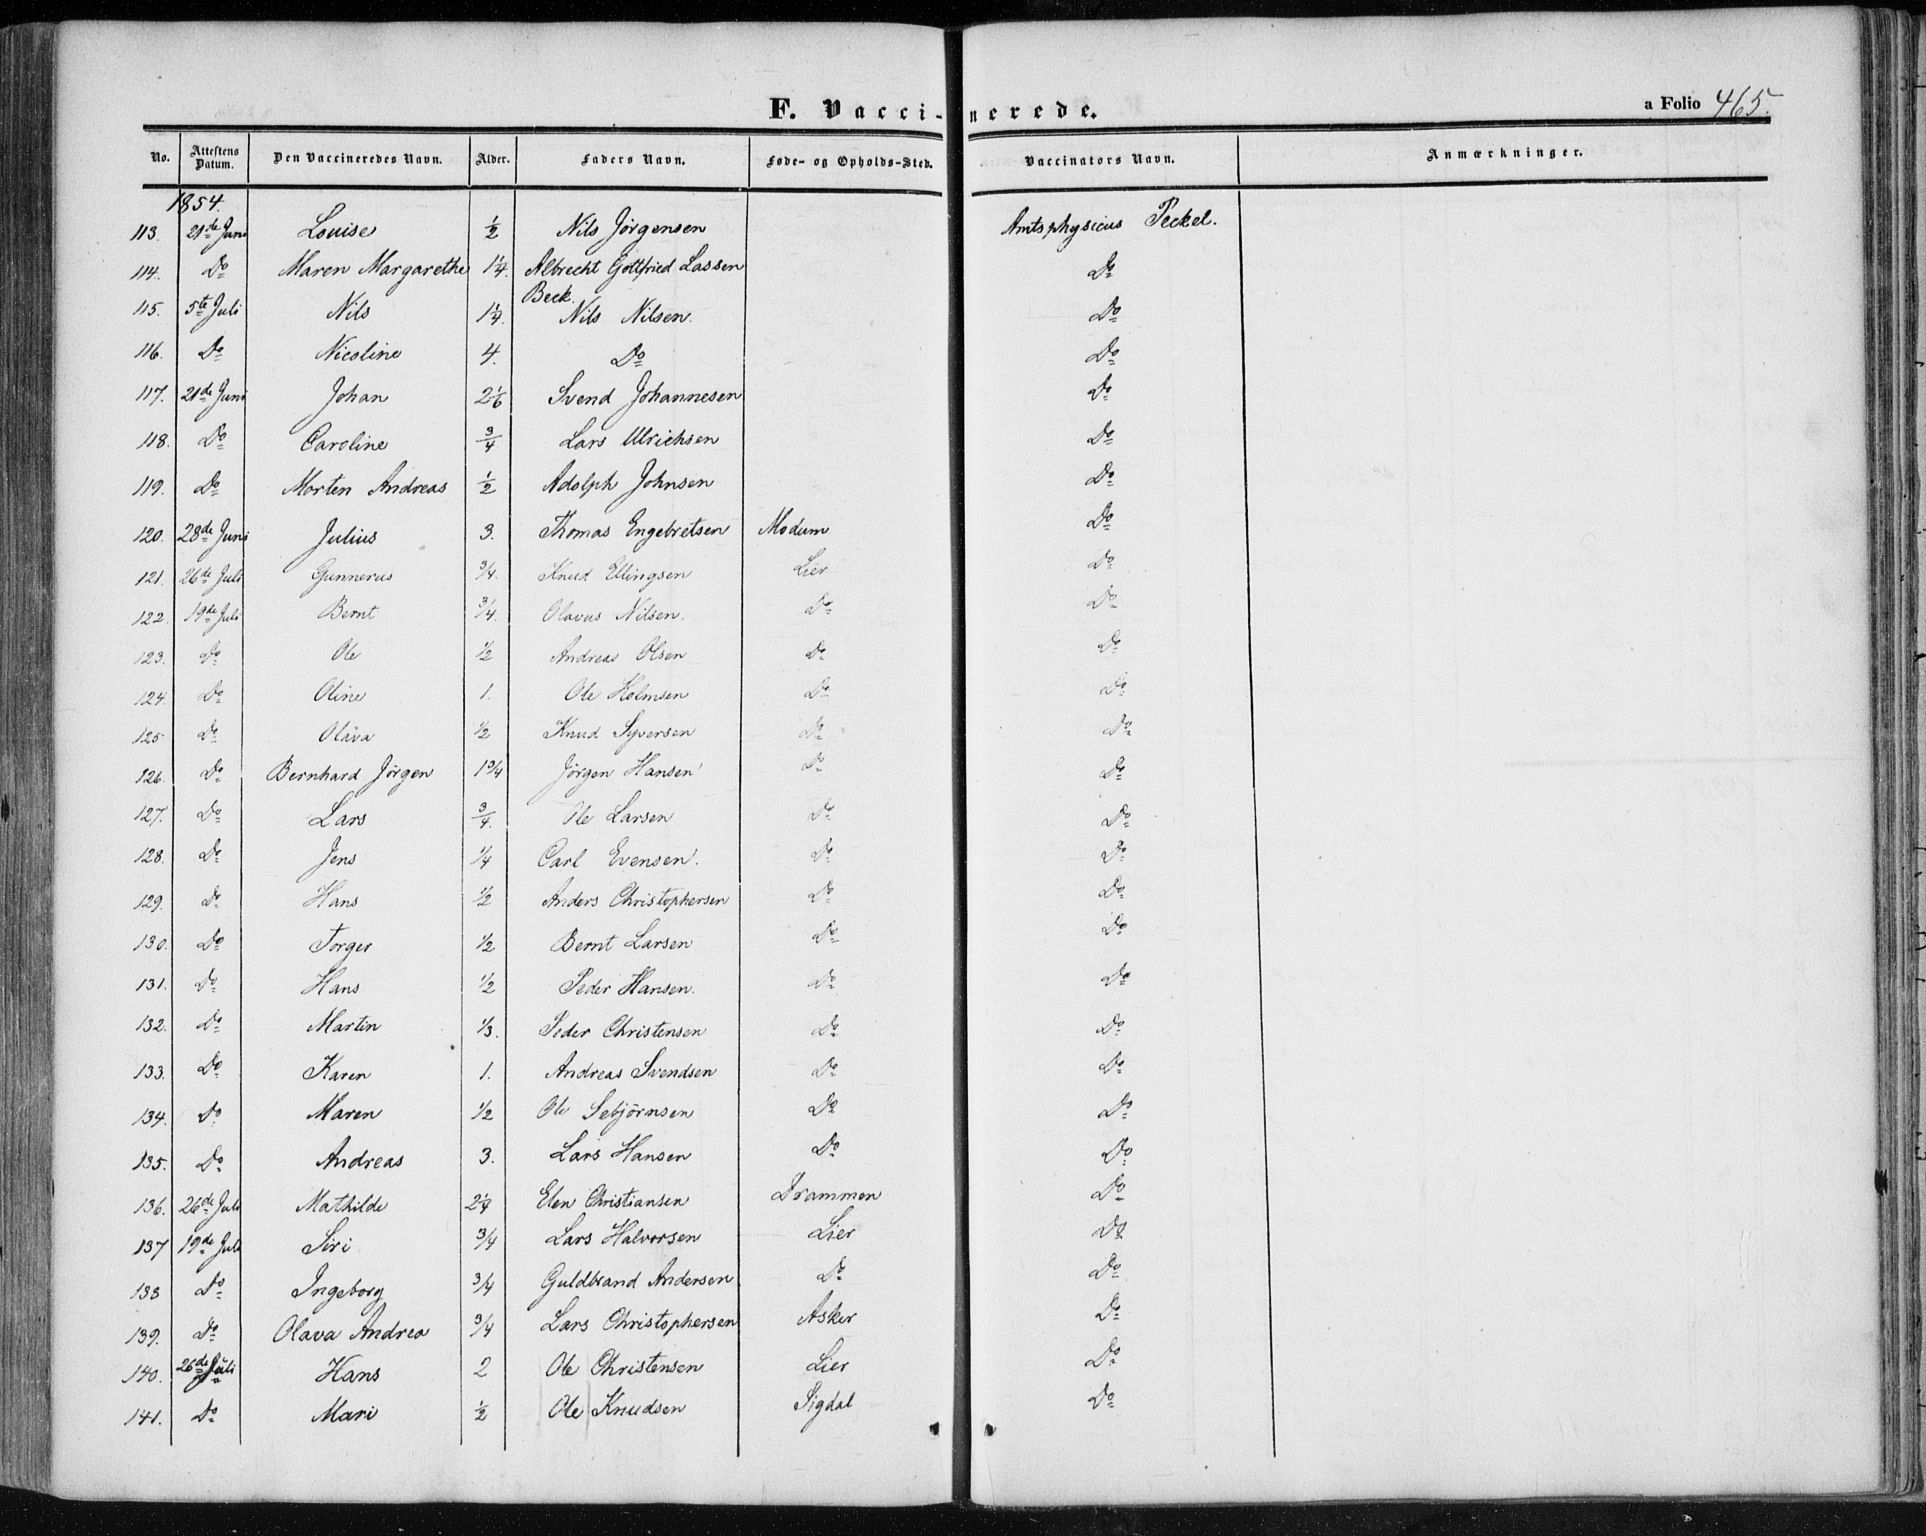 F. Vaccinerede.
a Folio 465.
No. Attestens Datum. Den Vaccineredes Navn. Alder. Faders Navn. Føde- og Opholds-Sted. Vaccinators Navn. Anmærkninger.
1854.
113. 21de Juni Louise 1/2 Nils Jörgensen Amtsphysicus Peckel.
114. Do Maren Margarethe 1 1/4. Albrecht Gottfried Lassen Do
Beck.
115. 5te Juli Nils 1 1/4. Nils Nilsen. Do
116. Do Nicoline 4. Do Do
117. 21de Juni Johan 2 1/6 Svend Johannesen Do
118. Do Caroline 3/4 Lars Ulrichsen Do
119. Do Morten Andreas 1/2 Adolph Johnsen Do
120. 28de Juni Julius 3. Thomas Engebretsen Modum Do
121. 26de Juli Gunnerus 3/4. Knud Ellingsen Lier Do
122. 19de Juli Bernt 3/4. Olavus Nilsen. Do Do
123. Do Ole 1/2 Andreas Olsen Do Do
124. Do Oline 1. Ole Holmsen Do Do
125 Do Olava 1/2 Knud Syversen Do Do
126. Do Bernhard Jörgen 1 3/4 Jörgen Hansen Do Do
127. Do Lars 3/4. Ole Larsen Do Do
128. Do Jens 1/4 Carl Evensen. Do Do
129. Do Hans 1/2 Anders Christophersen Do Do
130. Do Torger 1/2 Bernt Larsen Do Do
131. Do Hans 1/2 Peder Hansen. Do Do
132. Do Martin 1/3. Peder Christensen Do Do
133. Do Karen 1. Andreas Svendsen Do Do
134. Do Maren 1/2 Ole Sebjörnsen Do Do
135. Do Andreas 3. Lars Hansen Do Do
136. 26de Juli Mathilde 2 1/4 Elen Christiansen Drammen Do
137 19de Juli Siri 3/4 Lars Halvorsen Lier Do
138 Do Ingeborg 3/4 Guldbrand Andersen Do Do
139. Do Olava Andrea 3/4 Lars Christophersen Asker Do
140. 26de Juli Hans 2 Ole Christensen Lier Do
141. Do Mari 1/2 Ole Knudsen Sigdal Do